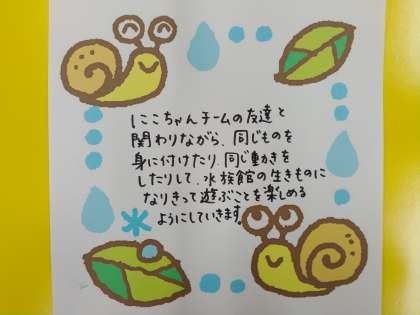 にこちゃんチームの友達と
関わりながら、同じものを
身に付けたり、同じ動きを
したりして、水族館の生きものに
なりきって遊ぶことを楽しめる
ようにしていきます。